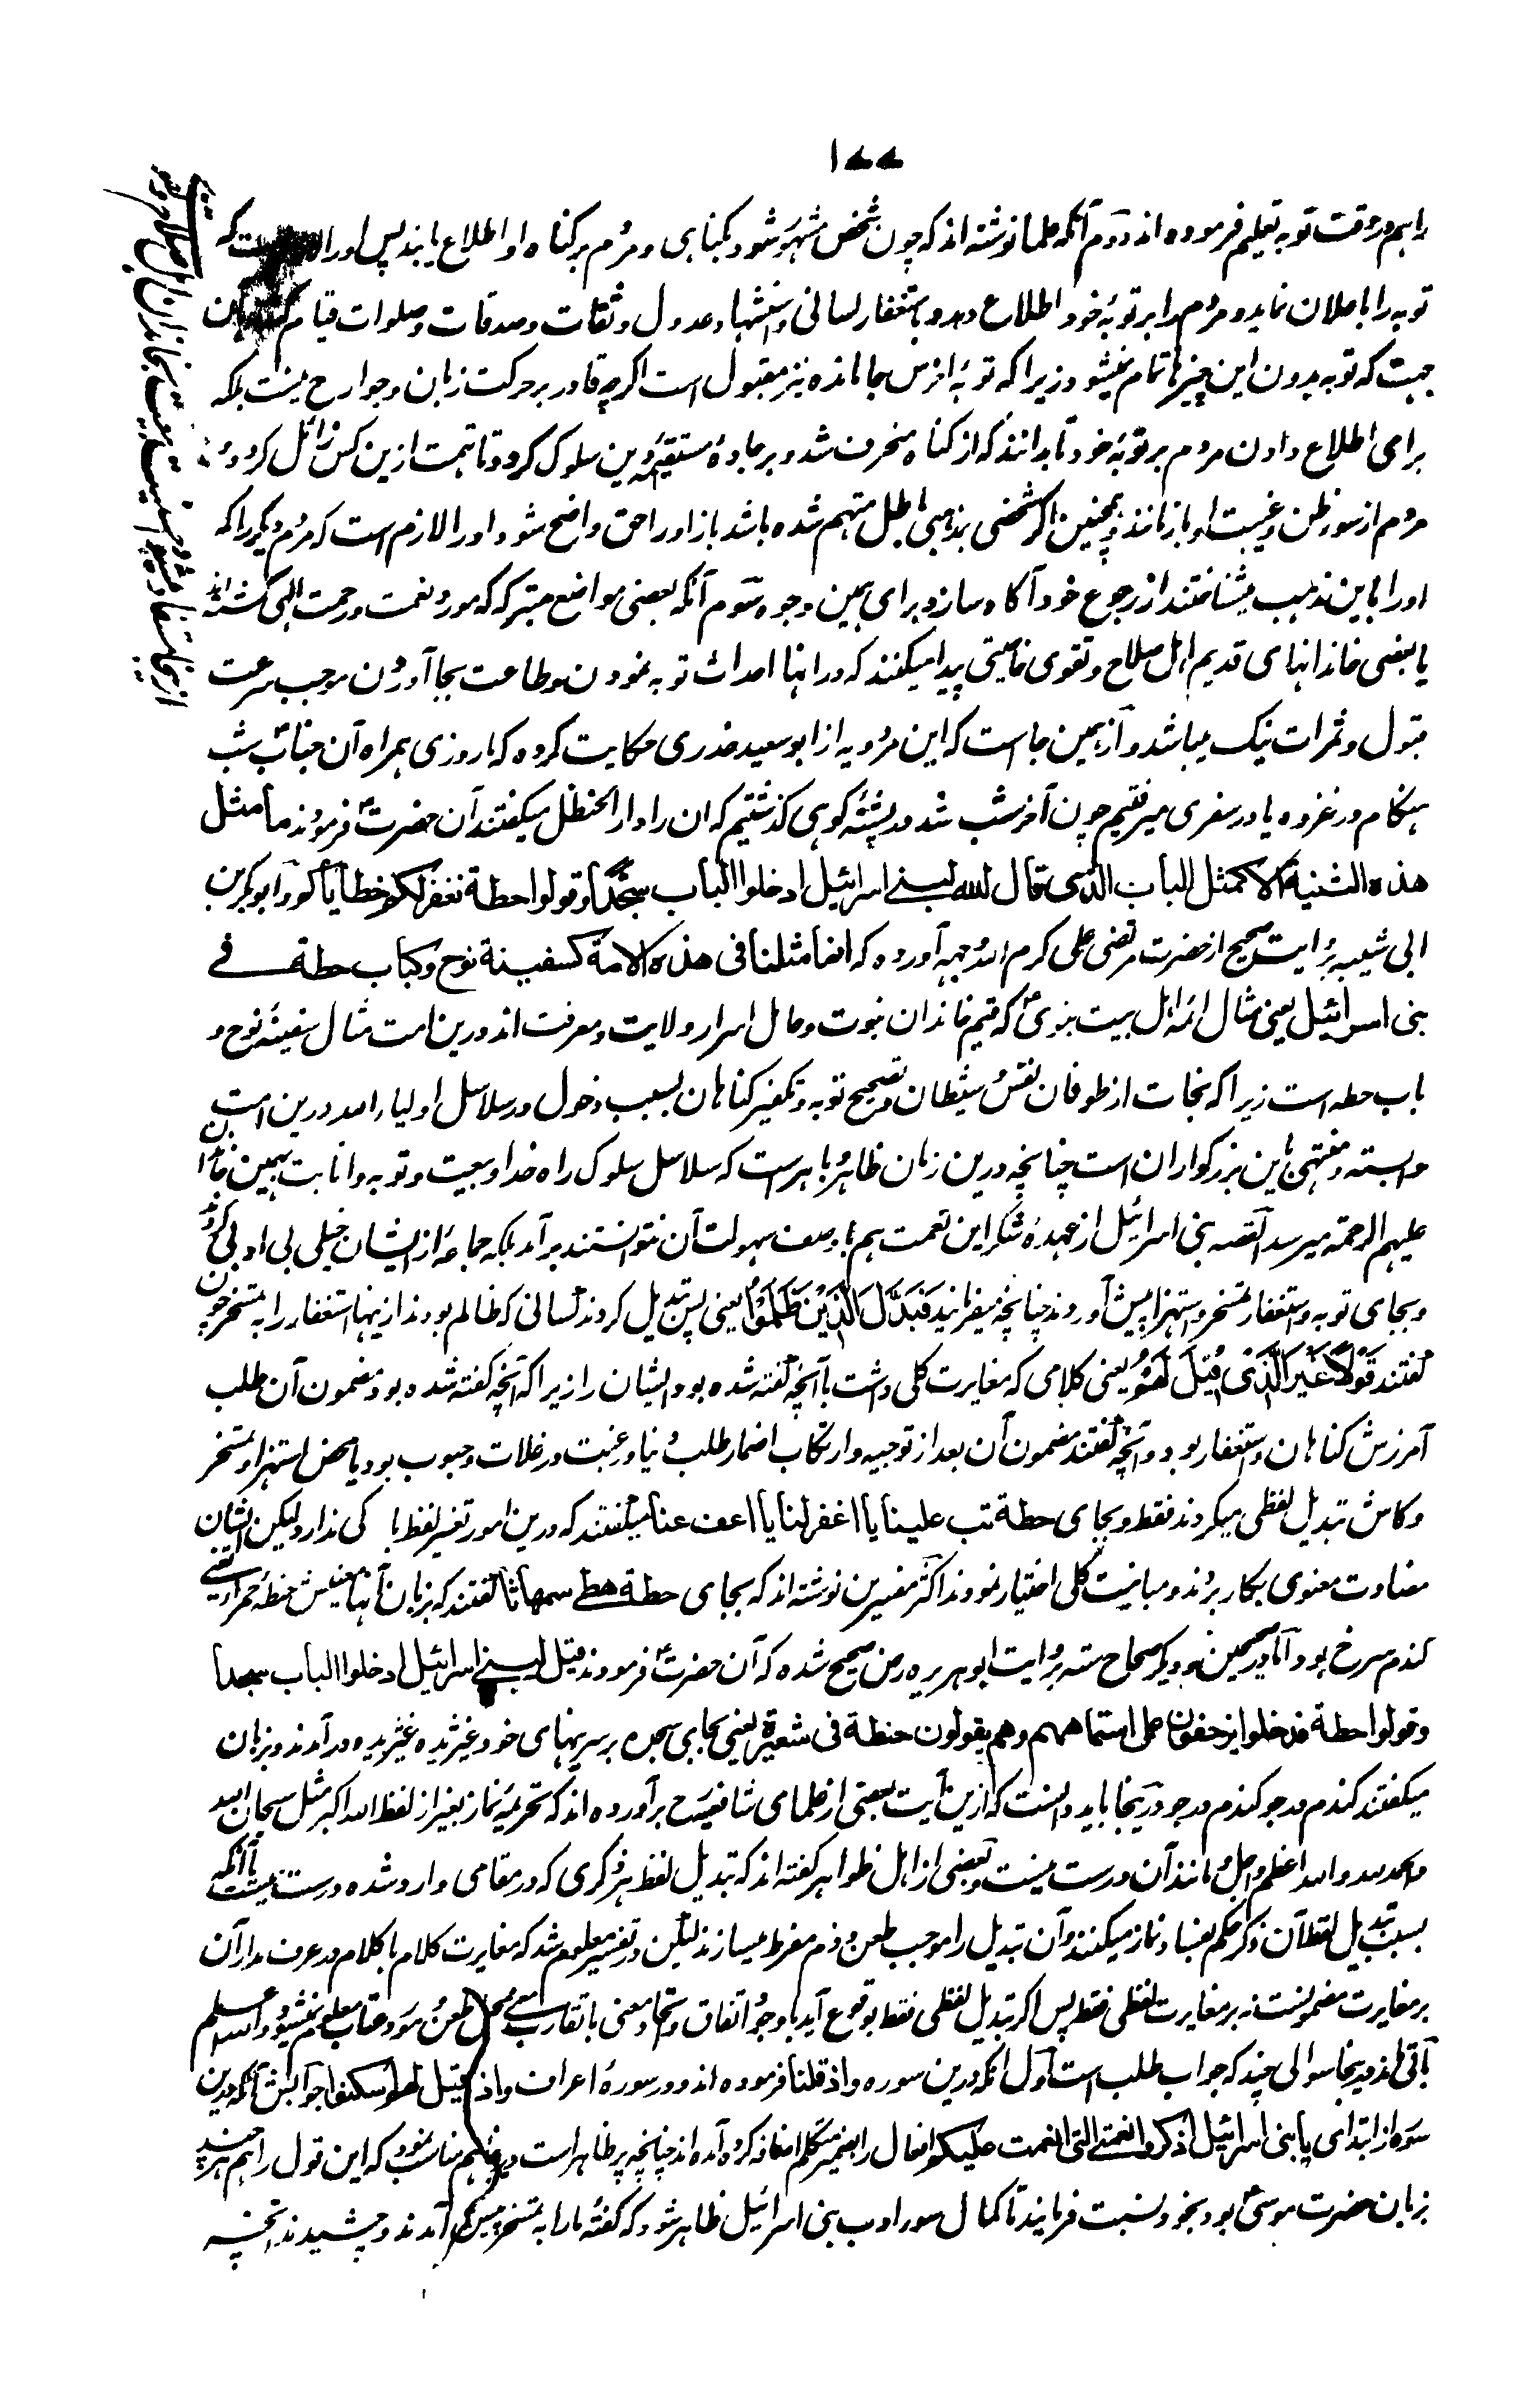 ۱۷۷
را هم در وقت توبه تعلیم فرموده اند دوم آنکه علما نوشته اند که چون شخص مشهور شود بگناهی و مردم بر گناه او اطلاع یابند پس او را که
توبه را باعلان نماید و مردم را بر توبهٔ خود اطلاع دهد و باستغفار لسانی و استشهاد عدول و ثقات و صدقات و صلوات قیام
جهت که توبه بدون این چیزها تمام نمیشود زیرا که توبهٔ اخرس بجا مانده نیز مقبول است اگرچه قادر بر حرکت زبان و جوارح نیست بلکه
برای اطلاع دادن مردم بر توبهٔ خود تا بدانند که از گناه منحرف شد و بر جادهٔ مستقیمهٔ دین سلوک کرد و تا تهمت ازین کس زائل گردد و
مردم از سوء ظن و غیبت او باز مانند و همچنین اگر شخصی بمذهبی باطل متهم شده باشد باز او را حق واضح شود او را لازم است که مردم دیگر را که
او را باین مذهب میشناختند از رجوع خود آگاه سازد برای همین وجوه سوم آنکه بعضی مواضع متبرکه که مورد نعمت و رحمت الهی گشته اند
یا بعضی خاندانهای قدیم اهل صلاح و تقوی خاصیتی پیدا میکنند که در انها احداث توبه نمودن و طاعت بجا آوردن موجب سرعت
قبول و ثمرات نیک میباشد و از همین جا است که ابن مردویه از ابو سعید خدری حکایت کرده که ما روزی همراه آن جناب شب
هنگام در غزوه یا در سفری میرفتیم چون آخر شب شد در پشتهٔ کوهی گذشتیم که ان را دار الحنظل میگفتند آن حضرت ؐ فرمودند ما مثل
هذه الثنیة الا کمثل الباب الذی قال الله لبنی اسرائیل ادخلوا الباب سجدا وقولوا حطة نغفر لکم خطایاکم و ابوبکر بن
ابی شیبه بروایت صحیح از حضرت مرتضی علی کرم الله وجهه آورده که انما مثلنا فی هذه الامة کسفینة نوح وکباب حطة فی
بنی اسرائیل یعنی مثال ائمه اهل بیت نبوی ؐ که قیم خاندان نبوت و حامل اسرار ولایت و معرفت اند درین امت مثال سفینهٔ نوح و
باب حطه است زیرا که نجات از طوفان نفس و شیطان و تصحیح توبه و تکفیر گناهان بسبب دخول در سلاسل اولیاء الله درین امت
وابسته و منتهی باین بزرگواران است چنانچه درین زمان ظاهر و باهر است که سلاسل سلوک راه خدا و بیعت و توبه و انابت بهمین خاندان
علیهم الرحمة میرسد القصه بنی اسرائیل از عهدهٔ شکر این نعمت هم با وصف سهولت آن نتوانستند بر آمد بلکه جماعهٔ از ایشان خیلی بی ادبی کردند
و بجای توبه و استغفار تمسخر و استهزا پیش آوردند چنانچه میفرمایند فَبَدَّلَ الَّذِیْنَ ظَلَمُوْا یعنی پس تبدیل کردند کسانی که ظالم بودند از ینها استغفار را به تمسخر چون
گفتند قَوْلًا غَیْرَ الَّذِیْ قِیْلَ لَهُمْ یعنی کلامی که مغایرت کلی داشت با آنچه گفته شده بود ایشان را زیرا که آنچه گفته شده بود مضمون آن طلب
آمرزش گناهان و استغفار بود و آنچه گفتند مضمون آن بعد از توجیه و ارتکاب اضمار طلب دنیا و رغبت در غلات و حبوب بود یا محض استهزا و تمسخر
و کاش تبدیل لفظی میکردند فقط و بجای حطة تب علینا یا اغفر لنا یا اعف عنا میگفتند که درین امور تغیر لفظ با کی ندارد لیکن ایشان
مضادت معنوی بکار بردند و مباینت کلی اختیار نمودند اکثر مفسرین نوشته اند که بجای حطة هطی سمهاثا گفتند که بزبان آنها معنیش حنطة حمراء است یعنی
گندم سرخ بود اما در صحیحین و دیگر صحاح سته بروایت ابو هریره رض صحیح شده که آن حضرت ؐ فرمودند قیل لبنی اسرائیل ادخلوا الباب سجدا
وقولوا حطة فدخلوا یزحفون علی استاههم وهم یقولون حنطة فی شعیرة یعنی بجای سجده بر سرینهای خود غیژیده غیژیده در آمدند و بزبان
میگفتند گندم در جو گندم در جو در ینجا باید دانست که ازین آیت بعضی از علمای شافعیه رح برآورده اند که تحریمهٔ نماز بغیر از لفظ الله اکبر مثل سبحان الله
و الحمد لله و الله اعظم و اجل و مانند آن درست نیست و بعضی از اهل ظواهر گفته اند که تبدیل لفظ هر ذکری که در مقامی وارد شده درست نیست تا آنکه
بسبب تبدیل لفظ آن ذکر حکم بفساد نماز میکنند و آن تبدیل را موجب طعن و ذم مفرط میسازند لیکن در تفسیر معلوم شد که مغایرت کلام با کلام در عرف مدار آن
بر مغایرت مضمونست نه بر مغایرت لفظی فقط پس اگر تبدیل لفظی فقط بوقوع آید با وجود اتفاق و اتحاد معنی یا تقارب معنی محل طعن و مورد عتاب معلوم نمیشود و الله اعلم
باقی ماند در ینجا سوالی چند که جواب طلب است اول انکه درین سوره و اذ قلنا فرموده اند و در سورهٔ اعراف واذ قیل لهم اسکنوا جوابش آنکه درین
سوره از ابتدای یا بنی اسرائیل اذکروا نعمتی التی انعمت علیکم افعال را بضمیر متکلم اضافه کرده آمده اند چنانچه پر ظاهر است در اینجا هم مناسب بود که این قول را هم هر چند
بزبان حضرت موسی ؑ بود بخود نسبت فرمایند تا کمال سوء ادب بنی اسرائیل ظاهر شود که گفتهٔ ما را به تمسخر پیش آمدند و چشیدند انچه